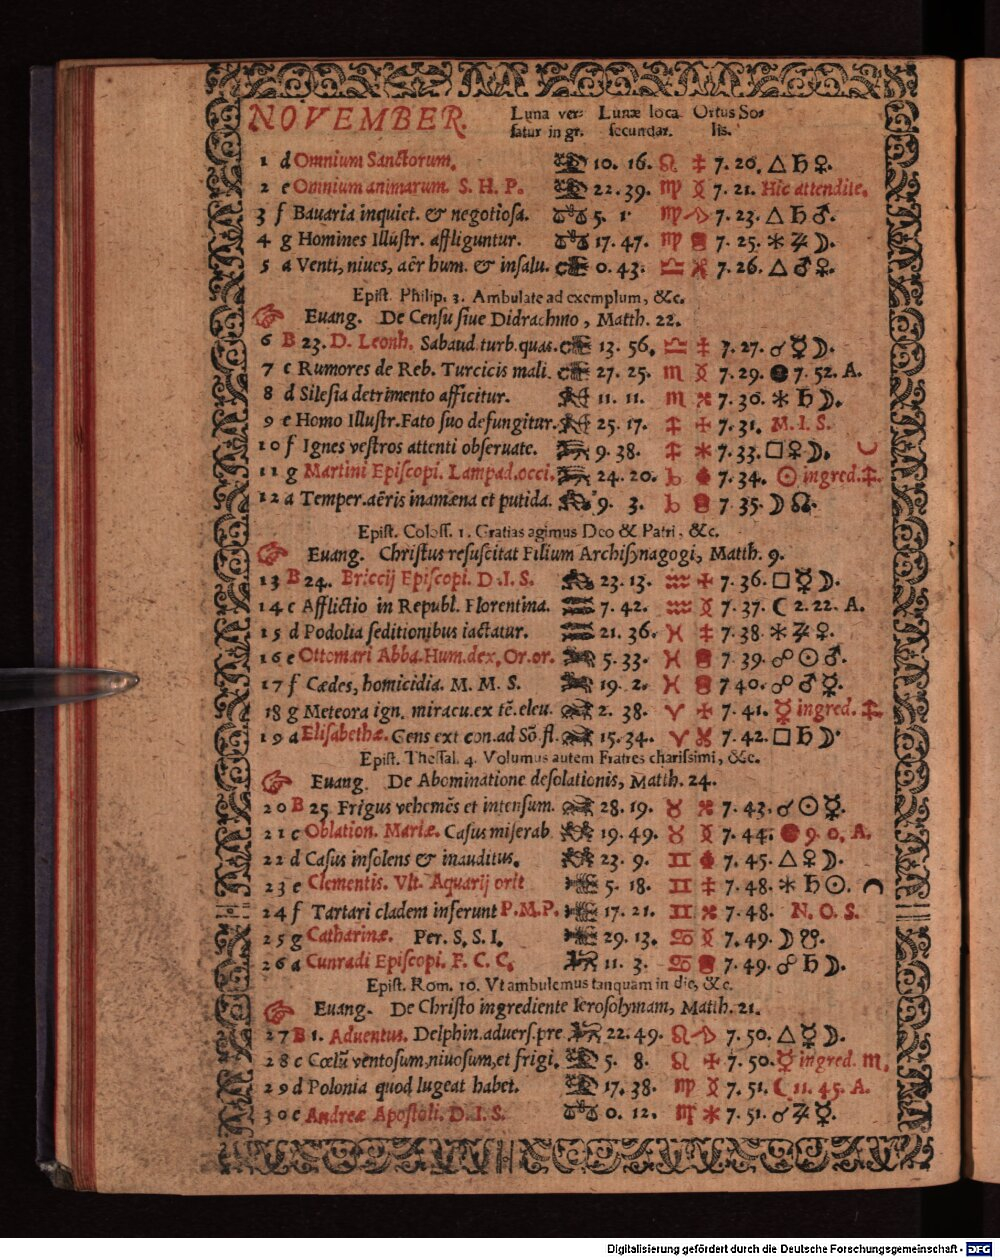 NOVEMBER. Luna ver= Lunæ loca Ortus So=
satur in gr. secundar. lis.
1 d Omnium Sanctorum. 10. 16. ♌ 7. 20. △ ♄ ♀.
2 e Omnium animarum. S. H. P. 22. 39. ♍ 7. 21. Hic attendite.
3 f Bavaria inquiet. & negotiosa. 5. 1 ♍ 7. 23. △ ♄ ♂.
4 g Homines Illustr. affliguntur. 17. 47. ♍ 7. 25. ⚹ ♃ ☽.
5 a Venti, nives, aër hum. & insalu. 0. 43. ♎ 7. 26. △ ♂ ♀.
Epist. Philip. 3. Ambulate ad exemplum, &c.
Euang. De Censu siue Didrachmo, Matth. 22.
6 B 23. D. Leonh. Sabaud. turb. quas. 13. 56. ♎ 7. 27. ☌ ☿ ☽.
7 c Rumores de Reb. Turcicis mali. 27. 25. ♏ 7. 29. ● 7. 52. A.
8 d Silesia detrimento afficitur. 11. 11. ♏ 7. 30. ⚹ ♄ ☽.
9 e Homo Illustr. Fato suo defungitur. 25. 17. 7. 31. M. I. S.
10 f Ignes vestros attenti obseruate. 9. 38. 7. 33. □ ♀ ☽.
11 g Martini Episcopi. Lampad. occi. 24. 20. 7. 34. ☉ ingred. ♐.
12 a Temper. aëris inamæna et putida. 9. 3. 7. 35. ☽ ☊.
Epist. Coloss. 1. Gratias agimus Deo & Patri, &c.
Euang. Christus resuscitat Filium Archisynagogi, Matth. 9.
13 B 24. Briccij Episcopi. D. I. S. 23. 13. ♒ 7. 36. □ ☿ ☽.
14 c Afflictio in Republ. Florentina. 7. 42. ♒ 7. 37. ☾ 2. 22. A.
15 d Podolia seditionibus iactatur. 21. 36. ♓ 7. 38. ⚹ ♃ ♀.
16 e Ottomari Abba. Hum. dex. Or. or. 5. 33. ♓ 7. 39. ☍ ☉ ♂.
17 f Cædes, homicidia. M. M. S. 19. 2. ♓ 7 40. ☍ ♂ ☿.
18 g Meteora ign. miracu. ex tē. eleu. 2. 38. ♈ 7. 41. ☿ ingred. ♐.
19 a Elisabethæ. Gens ext con. ad Sõ. fl. 15. 34. ♈ 7. 42. □ ♄ ☽.
Epist. Thessal. 4. Volumus autem Fratres charissimi, &c.
Euang. De Abominatione desolationis, Matth. 24.
20 B 25. Frigus vehemēs et intensum. 28. 19. ♉ 7. 43. ☌ ☉ ☿.
21 c Oblation. Mariæ. Casus miserab. 19. 49. ♉ 7. 44. ● 9. 0. A.
22 d Casus insolens & inauditus. 23. 9. ♊ 7. 45. △ ♀ ☽.
23 e Clementis. Vlt. Aquarij orit 5. 18. ♊ 7. 48. ⚹ ♄ ☉.
24 f Tartari cladem inferunt P. M. P. 17. 21. ♊ 7. 48. N. O. S.
25 g Catharinæ. Per. S. S. I. 29. 13. ♋ 7. 49. ☽ ☋.
26 a Cunradi Episcopi. F. C. C. 11. 3. ♋ 7. 49. ☍ ♄ ☽.
Epist. Rom. 10. Vt ambulemus tanquam in die, &c.
Euang. De Christo ingrediente Ierosolymam, Matth. 21.
27 B 1. Aduentus. Delphin. aduers. pre. 22. 49. ♌ 7. 50. △ ☿ ☽.
28 c Cœlū ventosum, niuosum, et frigi. 5. 8. ♌ 7. 50. ☿ ingred. ♏.
29 d Polonia quod lugeat habet. 17. 38. ♍ 7. 51. ☾ 11. 45. A.
30 e Andreæ Apostoli. D. I. S. 0. 12. ♍ 7. 51. ☌ ♃ ☿.
Digitalisierung gefördert durch die Deutsche Forschungsgemeinschaft - DFG